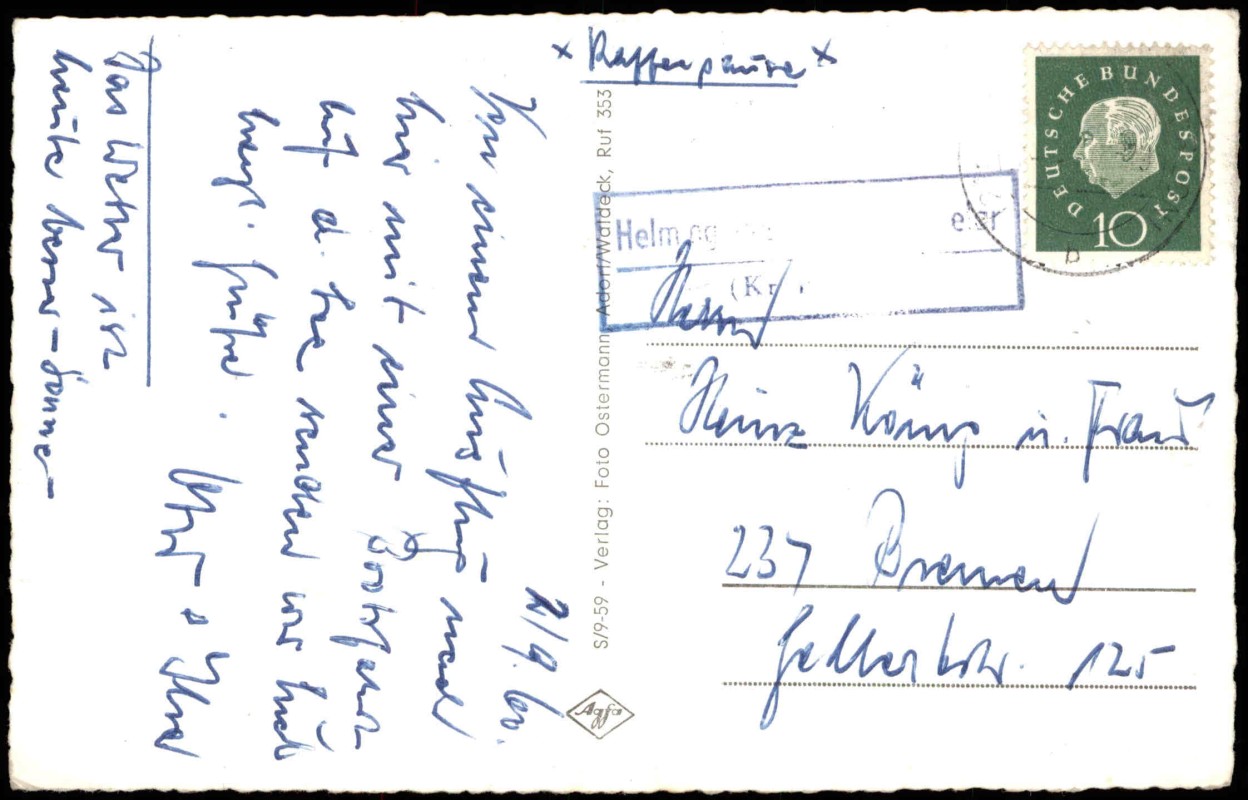 x Kaffeepause x
2/9. 60.
Von einem Ausflug nach
hier mit einer Bootsfahrt
auf d. See senden wir Euch
herzl. Grüße.
Das Wetter ist
heute besser - Sonne -
S/9-59 - Verlag: Foto Ostermann, Adorf/Waldeck, Ruf 353
Agfa
DEUTSCHE BUNDESPOST
10
(Kr
Heinz König u. Frau
237 Bremen
Gellertstr. 125